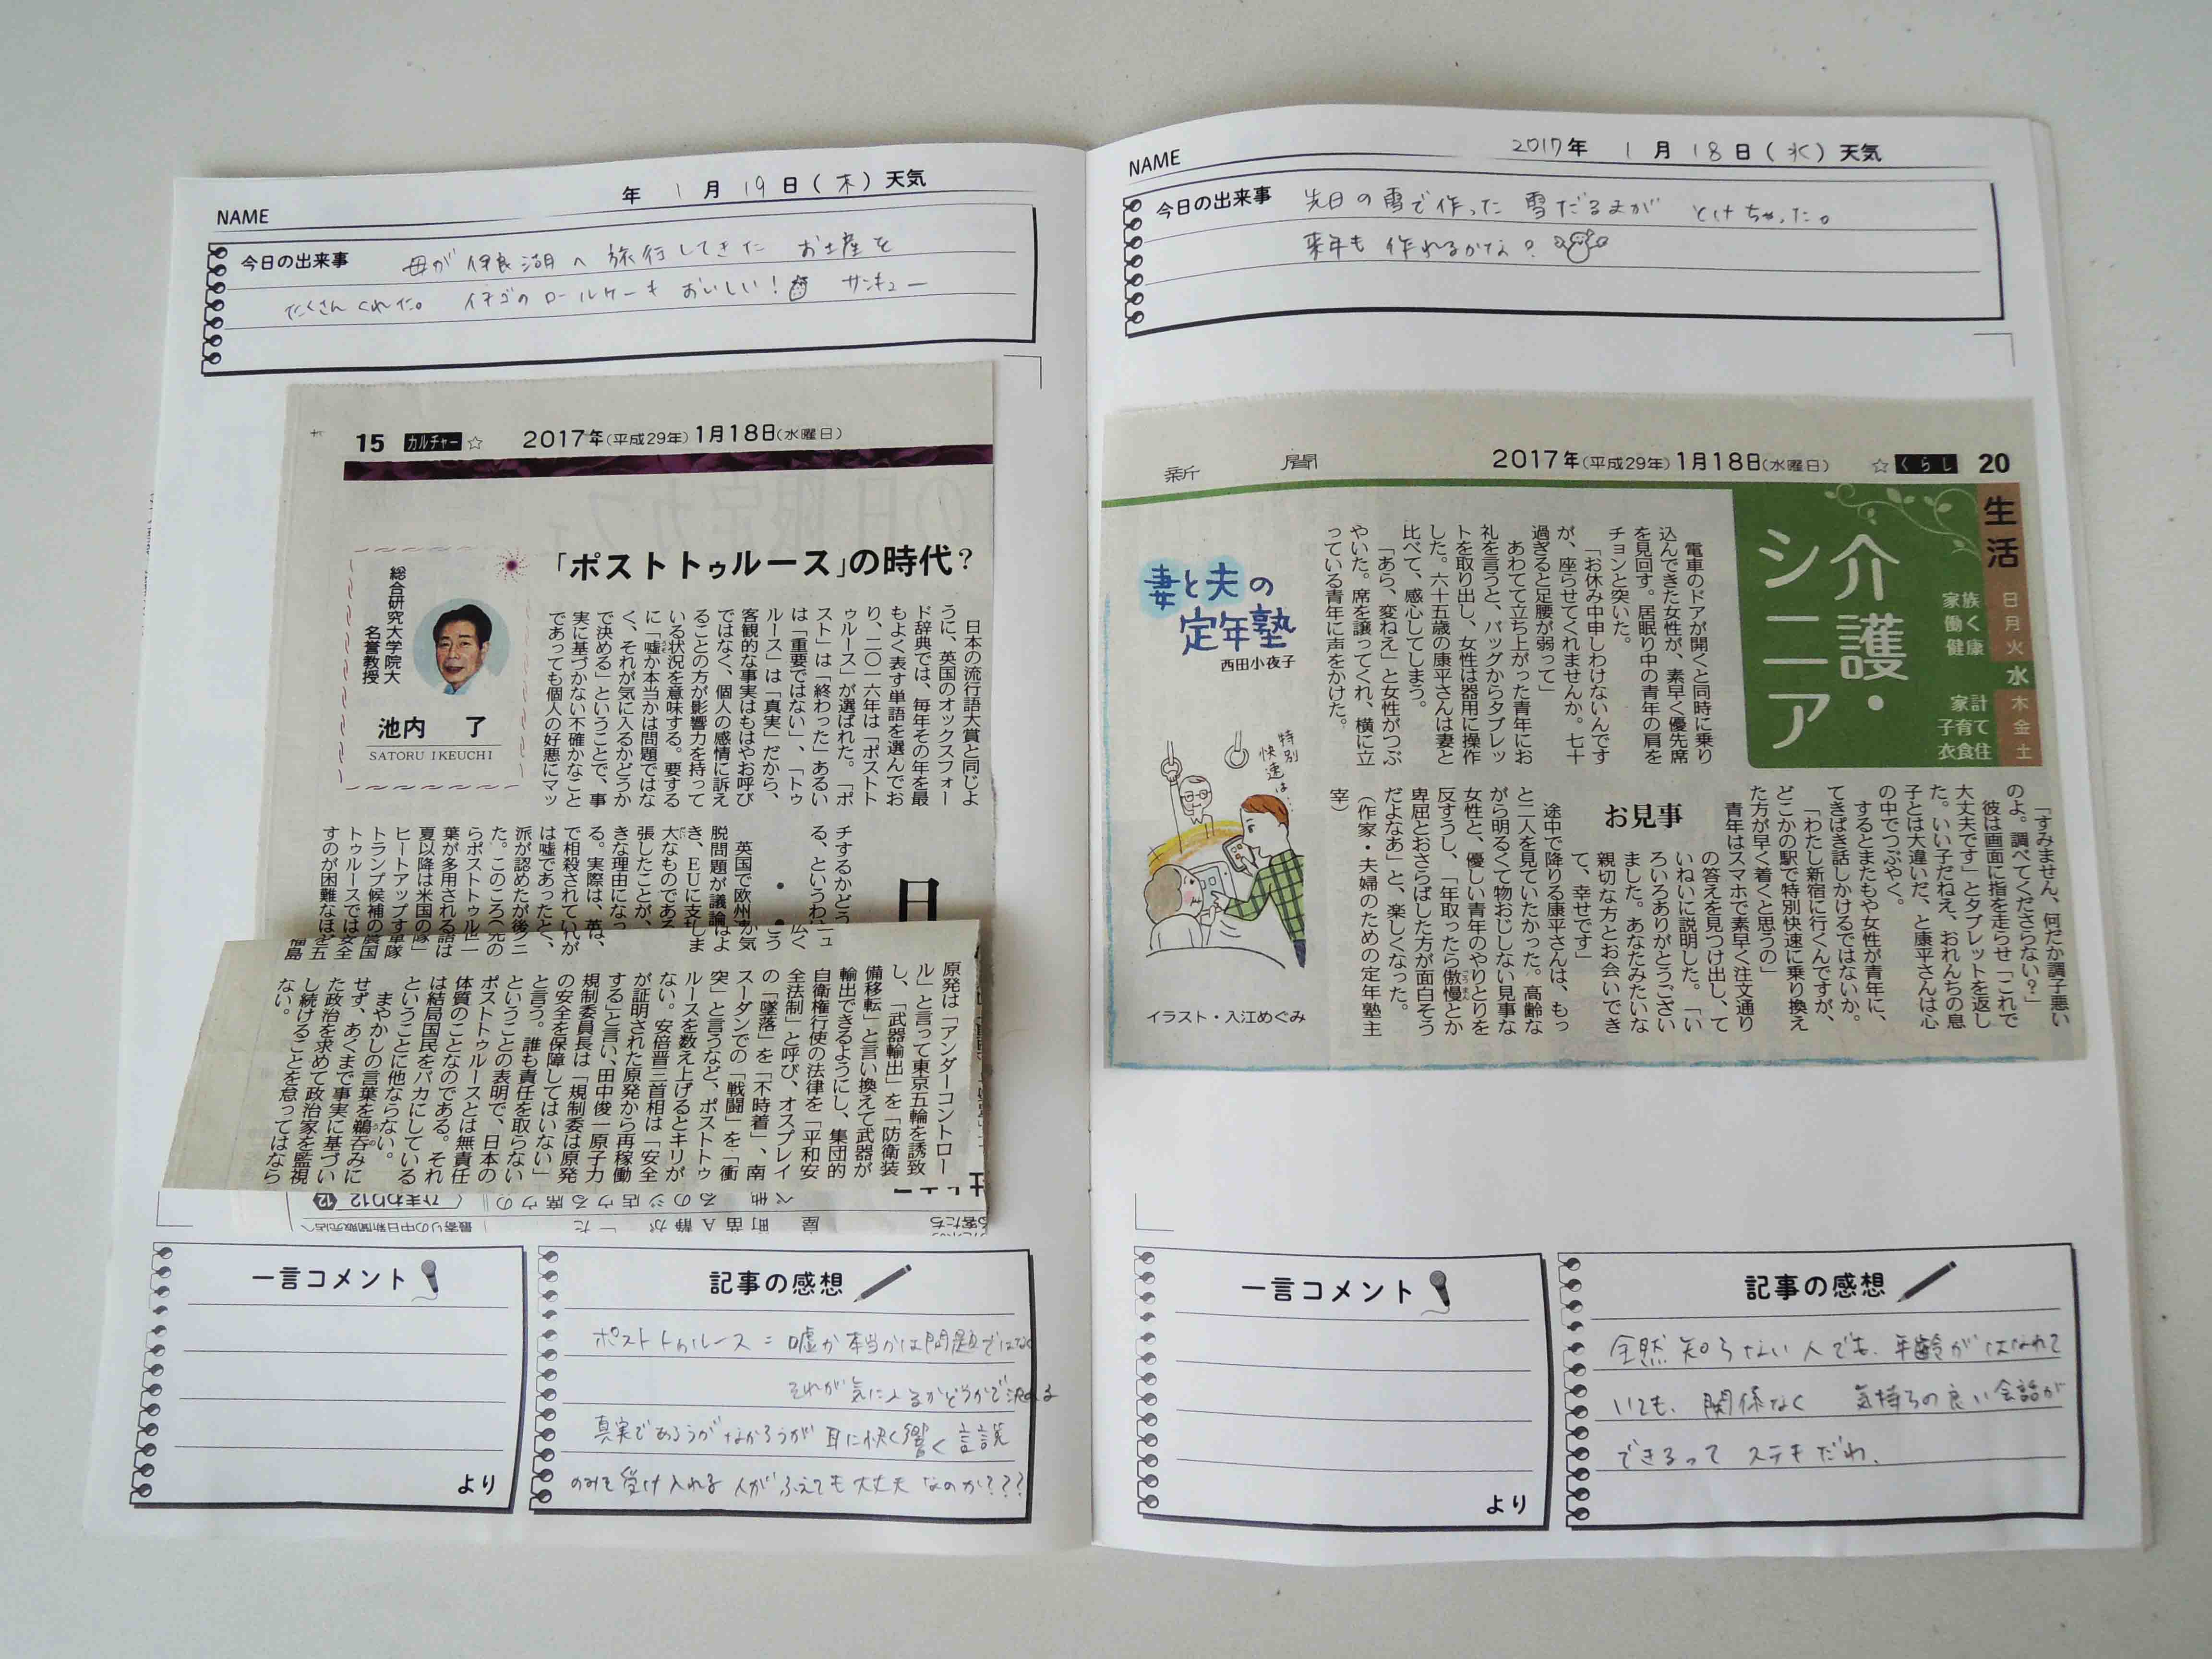 NAME
2017年 1月18日(水)天気
今日の出来事 先日の雪で作った 雪だるまが とけちゃった。
来年も 作れるかな?
新 聞
2017年(平成29年)1月18日(水曜日) ☆くらし 20
生活
日
家族 月
働く 火
健康 水
家計 木
子育て 金
衣食住 土
介護・
シニア
妻と夫の
定年塾
西田小夜子
電車のドアが開くと同時に乗り
込んできた女性が、素早く優先席
を見回す。居眠り中の青年の肩を
チョンと突いた。
「お休み中申しわけないんです
が、座らせてくれませんか。七十
過ぎると足腰が弱って」
あわてて立ち上がった青年にお
礼を言うと、バッグからタブレッ
トを取り出し、女性は器用に操作
した。六十五歳の康平さんは妻と
比べて、感心してしまう。
「あら、変ねえ」と女性がつぶ
やいた。席を譲ってくれ、横に立
っている青年に声をかけた。
「すみません、何だか調子悪い
のよ。調べてくださらない?」
彼は画面に指を走らせ「これで
大丈夫です」とタブレットを返し
た。いい子だねえ、おれんちの息
子とは大違いだ、と康平さんは心
の中でつぶやく。
するとまたもや女性が青年に、
てきぱき話しかけるではないか。
「わたし新宿に行くんですが、
どこかの駅で特別快速に乗り換え
た方が早く着くと思うの」
青年はスマホで素早く注文通り
の答えを見つけ出し、て
いねいに説明した。「い
ろいろありがとうござい
ました。あなたみたいな
親切な方とお会いでき
て、幸せです」
お見事
途中で降りる康平さんは、もっ
と二人を見ていたかった。高齢な
がら明るくて物おじしない見事な
女性と、優しい青年のやりとりを
反すうし、「年取ったら傲慢とか
卑屈とおさらばした方が面白そう
だよなあ」と、楽しくなった。
(作家・夫婦のための定年塾主
宰)
特別
快速は…
イラスト・入江めぐみ
一言コメント
より
記事の感想
全然知らない人でも、年齢がはなれて
いても、関係なく 気持ちの良い会話が
できるって ステキだわ。
NAME
年 1月19日(木)天気
今日の出来事 母が伊良湖へ旅行してきた お土産を
たくさんくれた。 イチゴのロールケーキ おいしい! サンキュー
15 カルチャー☆ 2017年(平成29年)1月18日(水曜日)
「ポストトゥルース」の時代?
総合研究大学院大
名誉教授
池内 了
SATORU IKEUCHI
日本の流行語大賞と同じよ
うに、英国のオックスフォー
ド辞典では、毎年その年を最
もよく表す単語を選んでお
り、二〇一六年は「ポストト
ゥルース」が選ばれた。「ポ
スト」は「終わった」あるい
は「重要ではない」、「トゥ
ルース」は「真実」だから、
客観的な事実はもはやお呼び
ではなく、個人の感情に訴え
ることの方が影響力を持って
いる状況を意味する。要する
に「嘘か本当かは問題ではな
く、それが気に入るかどうか
で決める」ということで、事
実に基づかない不確かなこと
であっても個人の好悪にマッ
チするかどう
る、というわ
英国で欧州
脱問題が議論
き、EUに支
大なものである
張したことが、
きな理由になっ
る。実際は、英
で相殺されてい
は嘘であったと、
派が認めたが後
た。このころ
らポストトゥル
葉が多用される
夏以降は米国の
ヒートアップす
トランプ候補の
トゥルースでは
すのが困難なほ
日
福島
原発は「アンダーコントロー
ル」と言って東京五輪を誘致
し、「武器輸出」を「防衛装
備移転」と言い換えて武器が
輸出できるようにし、集団的
自衛権行使の法律を「平和安
全法制」と呼び、オスプレイ
の「墜落」を「不時着」、南
スーダンでの「戦闘」を「衝
突」と言うなど、ポストトゥ
ルースを数え上げるとキリが
ない。安倍晋三首相は「安全
が証明された原発から再稼働
する」と言い、田中俊一原子力
規制委員長は「規制委は原発
の安全を保障してはいない」
と言う。誰も責任を取らない
ということの表明で、日本の
ポストトゥルースとは無責任
体質のことなのである。それ
は結局国民をバカにしている
ということに他ならない。
まやかしの言葉を鵜呑みに
せず、あくまで事実に基づい
た政治を求めて政治家を監視
し続けることを怠ってはなら
ない。
ひまわり12
最寄りの中日新聞販売店へ
一言コメント
より
記事の感想
ポストトゥルース=嘘か本当かは問題ではなく
それが気に入るかどうかで決める
真実であろうがなかろうが 耳に快く響く言説
のみを受け入れる人がふえても大丈夫なのか???